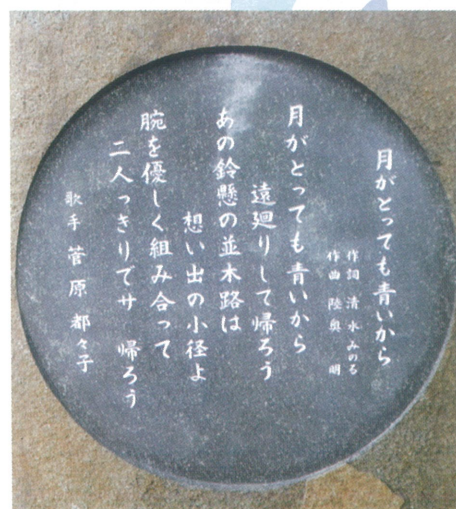 月がとっても青いから
作詞 清水みのる
作曲 陸奥 明
月がとっても青いから
遠廻りして帰ろう
あの鈴懸の並木路は
想い出の小径よ
腕を優しく組み合って
二人っきりでサ 帰ろう
歌手 菅原 都々子